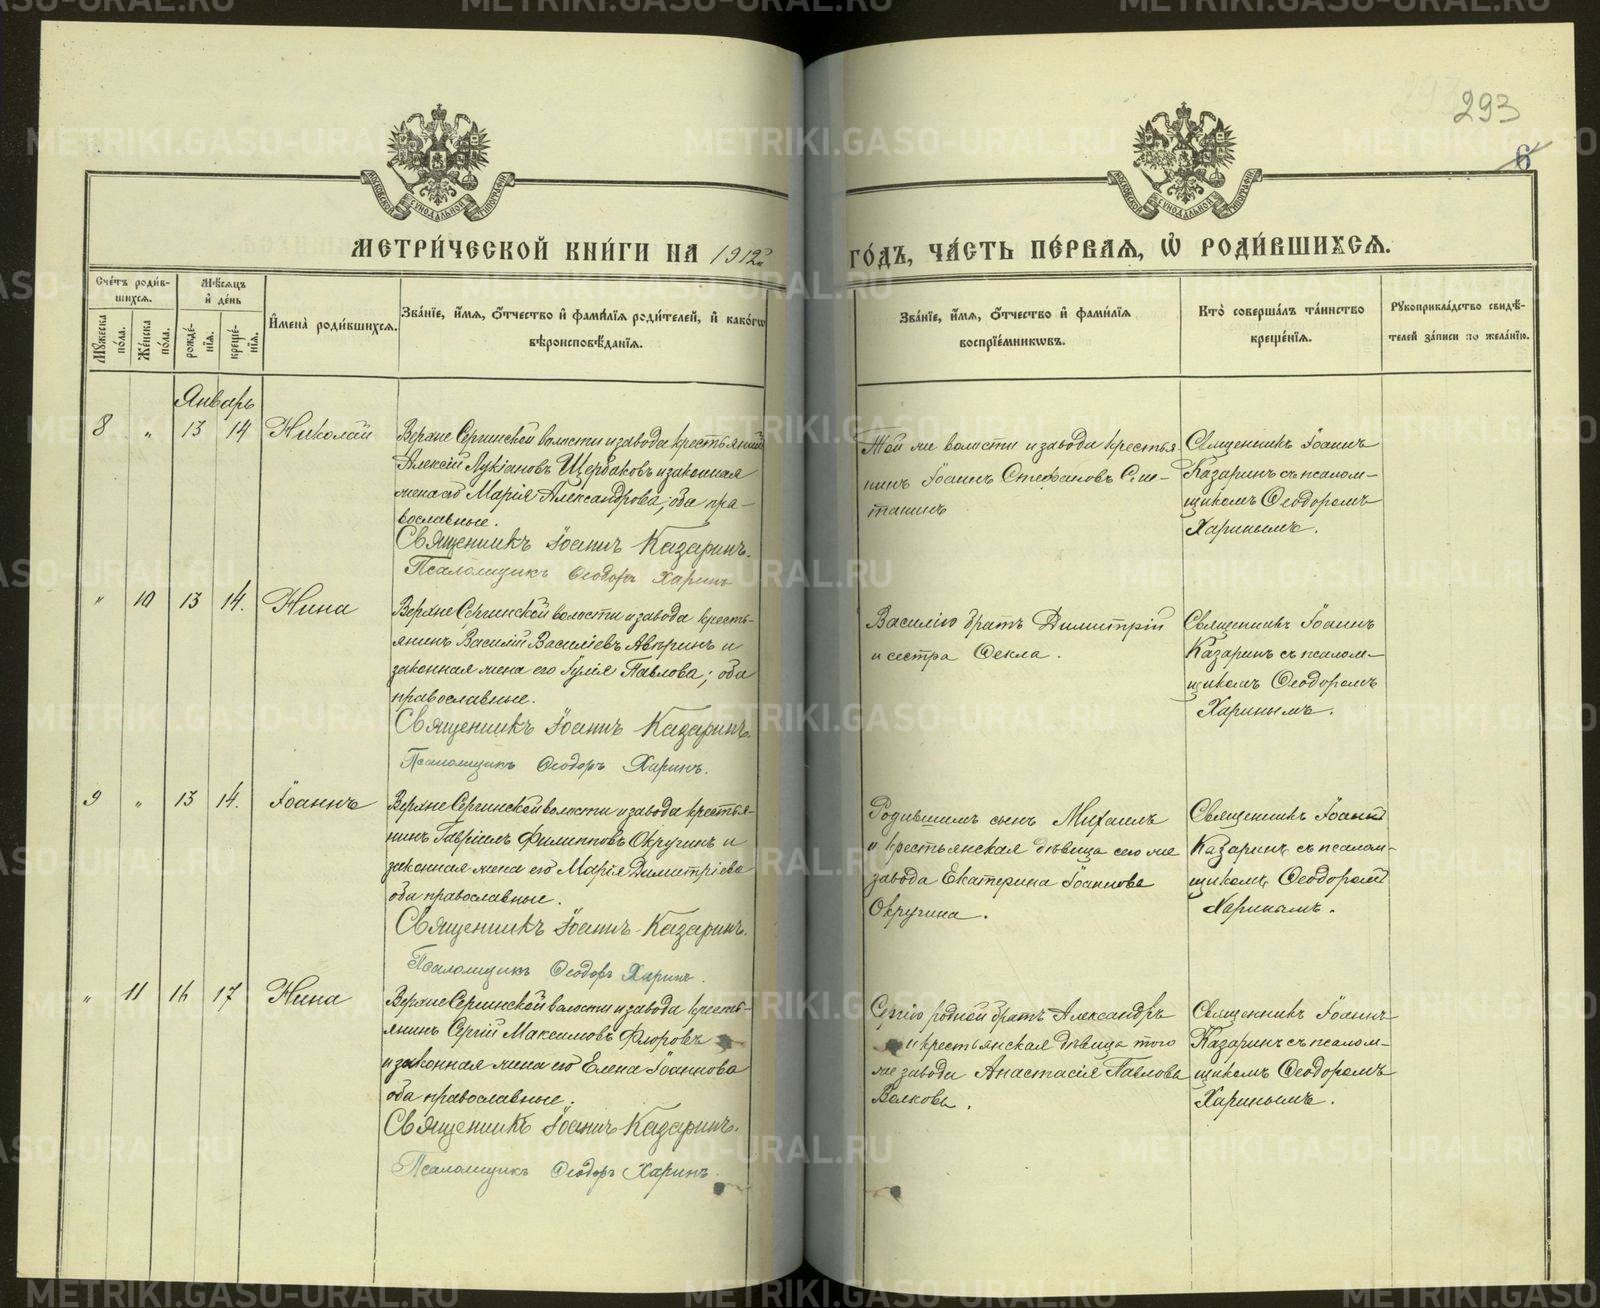 293
6
МЕТРИ́ЧЕСКОЙ КНИ́ГИ НА 1912 ГО́ДЪ, ЧА́СТЬ ПЕ́РВАЯ, Ѡ РОДИ́ВШИХСЯ.
Сче́тъ роди́в-
шихся.
Мѣ́сяцъ
и де́нь
Мꙋ́жеска
по́ла.
Же́нска
по́ла.
рожде́-
нїя.
креще́-
нїя.
И҆мена̀ роди́вшихся.
Зва́нїе, и҆́мя, ѻ҆́тчество и҆ фами́лїя роди́телей, и҆ како́гѡ
вѣроисповѣ́данїя.
Зва́нїе, и҆́мя, ѻ҆́тчество и҆ фами́лїя
воспрїе́мникѡвъ.
Кто̀ соверша́лъ та́инство
креще́нїя.
Рꙋкоприкла́дство свидѣ́-
телей за́писи по жела́нїю.
Январь
8 „ 13 14 Николай
Верхне Сергинской волости и завода крестьянинъ
Алексій Лукіановъ Щербаковъ и законная
жена его Марія Александрова; оба пра-
вославные.
Священникъ Іоаннъ Казаринъ.
Псаломщикъ Ѳеодоръ Харинъ
Той же волости и завода крестья-
нинъ Іоаннъ Стефановъ
Священникъ Іоаннъ
Казаринъ съ псалом-
щикомъ Ѳеодоромъ
Харинымъ.
„ 10 13 14. Нина
Верхне Сергинской волости и завода кресть-
янинъ Василій Василіевъ и
законная жена его Іулія Павлова; оба
православные.
Священникъ Іоаннъ Казаринъ.
Псаломщикъ Ѳеодоръ Харинъ.
Василію братъ Димитрій
и сестра Ѳекла.
Священникъ Іоаннъ
Казаринъ съ псалом-
щикомъ Ѳеодоромъ
Харинымъ.
9 „ 13 14. Іоаннъ
Верхне Сергинской волости и завода крестья-
нинъ Гавріилъ Филипповъ Окручинъ и
законная жена его Марія Димитріева
оба православные.
Священникъ Іоаннъ Казаринъ.
Псаломщикъ Ѳеодоръ Харинъ.
Родившимъ сынъ Михаилъ
и крестьянская дѣвица сего же
завода Екатерина Іоаннова
Окручина.
Священникъ Іоаннъ
Казаринъ съ псалом-
щикомъ Ѳеодоромъ
Харинымъ.
„ 11 16 17 Нина
Верхне Сергинской волости и завода кресть-
янинъ Сергій Максимовъ Флоровъ
и законная жена его Елена Іоаннова
оба православные.
Священникъ Іоаннъ Казаринъ.
Псаломщикъ Ѳеодоръ Харинъ.
Сергію родной братъ Александръ
и крестьянская дѣвица того
же завода Анастасія Павлова
Волкова.
Священникъ Іоаннъ
Казаринъ съ псалом-
щикомъ Ѳеодоромъ
Харинымъ.
METRIKI.GASO-URAL.RU